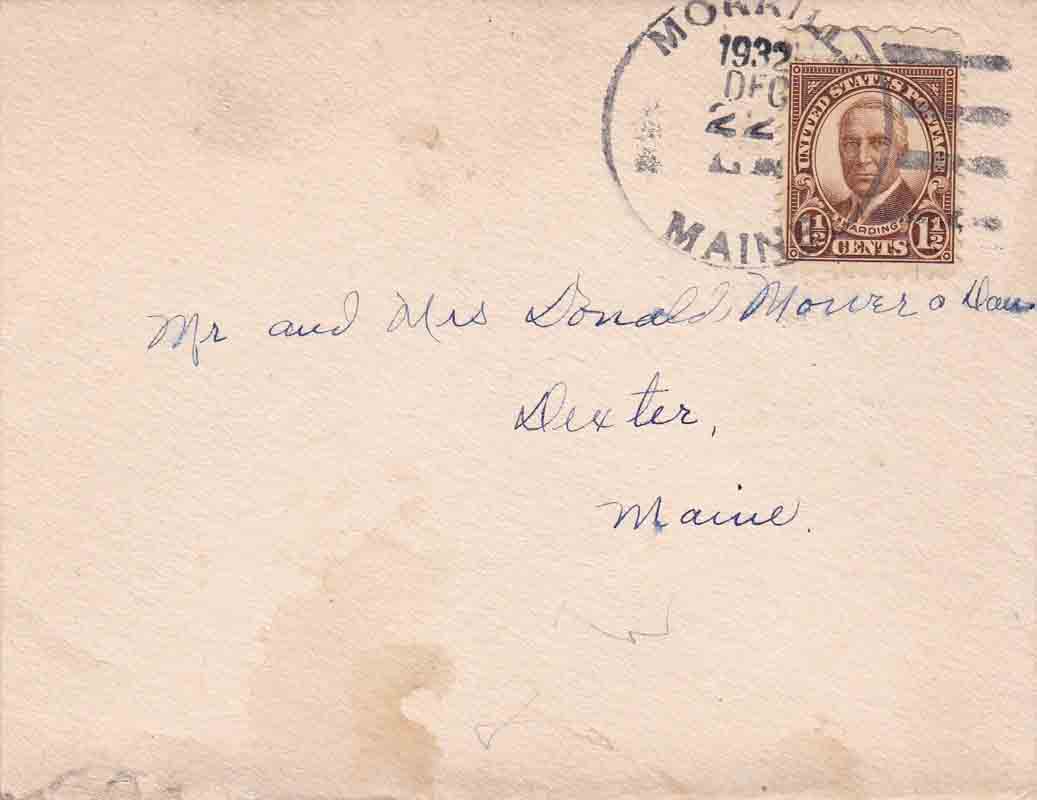 MORRILL
1932
DEC
22
MAINE
UNITED STATES POSTAGE
HARDING
1½ CENTS 1½
Mr and Mrs Donald Mower & Dau
Dexter,
Maine.